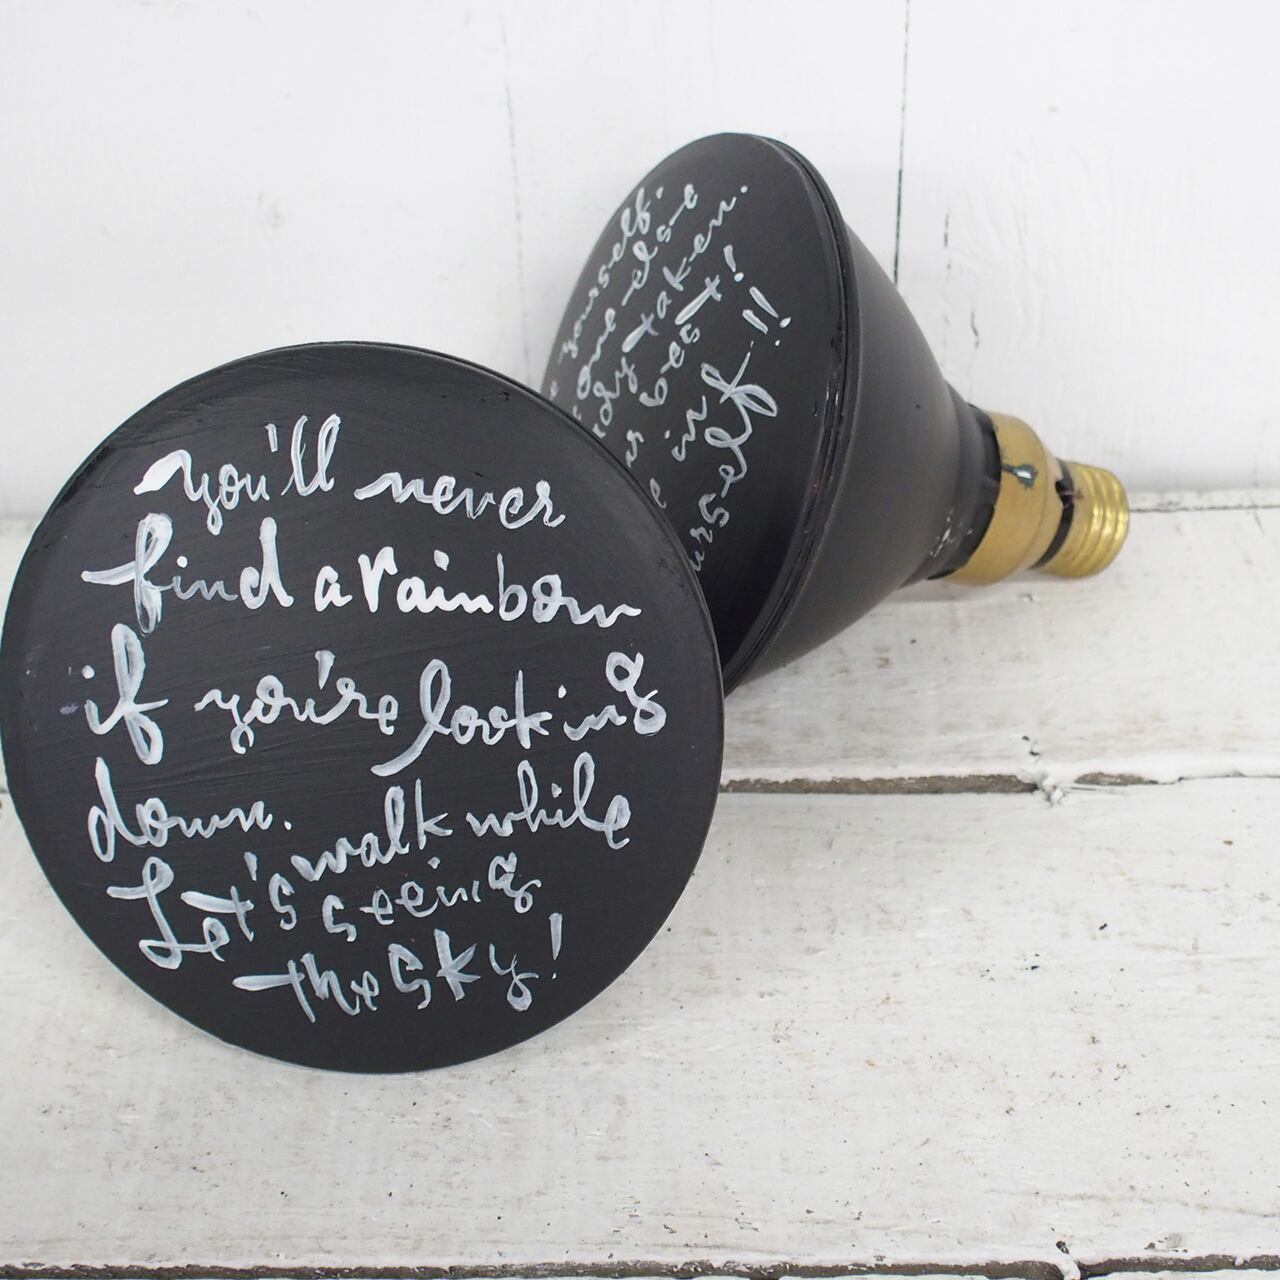 you'll never
find a rainbow
if you're looking
down.
Let's walk while
seeing
the sky!
yourself.
one else
taken.
best!
in
urself!!